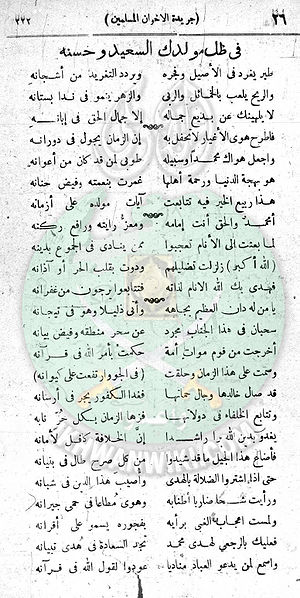 ٢٦ (جريدة الاخوان المسلمين) ٢٢٢
فى ظل مولدك السعيد وحسنه
طير يغرد فى الأصيل وفجره ويردد التغريد من أشجانه
والريح يلعب بالخمائل والربى والزهر ينمو فى ندا بستانه
لا يلهينك عن بديع جماله إلا جمال الحق فى إبانه
فاطرح هوى الأغيار لا تحفل به إن الزمان يجول فى دورانه
واجعل هواك محمداً وسبيله طوبى لمن قد كان من أعوانه
هو بهجة الدنيا ورحمة أهلها غمرت بنعمته وفيض حنانه
هذا ربيع الخير فيه تتابعت آيات مولده على أزمانه
أمحمد والحق أنت إمامه ومعز رايته ورافع ركنه
لما بعثت الى الأنام تعجبوا ممن ينادى فى الجموع بدينه
(الله أكبر) زلزلت تضليلهم ودوت بقلب الحر أو آذانه
فهدى بك الله الأنام لذاته فتتابعوا يرجون من غفرانه
يا من له دان العظيم بجاهه وأتى ذليلا وهو فى تيجانه
سحبان فى هذا الجناب مجرد عن سحر منطقه وفيض بيانه
أخرجت من قوم موات أمة حكمت بأمر الله فى قرآنه
وسمت على هذا الزمان وحلقت (فى الجو وارتفعت على كيوانه)
قد صال خالدها وجال حماتها فغدا الكفور يجر فى أرسانه
وتتابع الخلفاء فى دولاتها فزها الزمان بكل نابه
يفدو بدين الله برا راشدا إن الخلافة كفل لأمانه
فأضاع هذا الجيل ما قد شيدوا من كل صرح طال فى بنيانه
حتى اذا اشتروا الضلالة بالهدى وأصيب هذا الدين فى شبانه
ورأيت شحا ضاربا أطنابه وهوى مطاعا فى حمى جيرانه
ولمست اعجاب الغبى برأيه بفجوره يسمو على أقرانه
فعليك بالرجعى لهدى محمد تجد السعادة فى هدى تبيانه
واصمع لمن يدعو العباد مناديا عودوا لقول الله فى قرآنه
IKHWANWIKI.COM